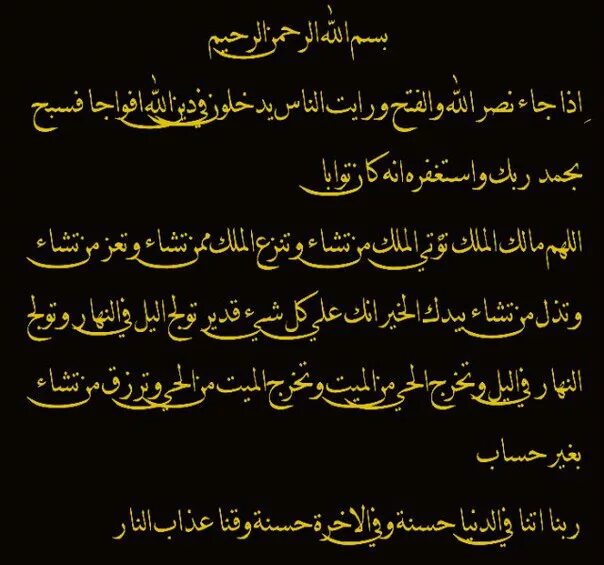 بسم الله الرحمن الرحيم
إذا جاء نصر الله والفتح ورايت الناس يدخلون في دين الله افواجا فسبح
بحمد ربك واستغفره انه كان توابا
اللهم مالك الملك تؤتي الملك من تشاء وتنزع الملك ممن تشاء وتعز من تشاء
وتذل من تشاء بيدك الخير انك على كل شيء قدير تولج اليل في النهار وتولج
النهار في اليل وتخرج الحي من الميت وتخرج الميت من الحي وترزق من تشاء
بغير حساب
ربنا اتنا في الدنيا حسنة وفي الاخرة حسنة وقنا عذاب النار